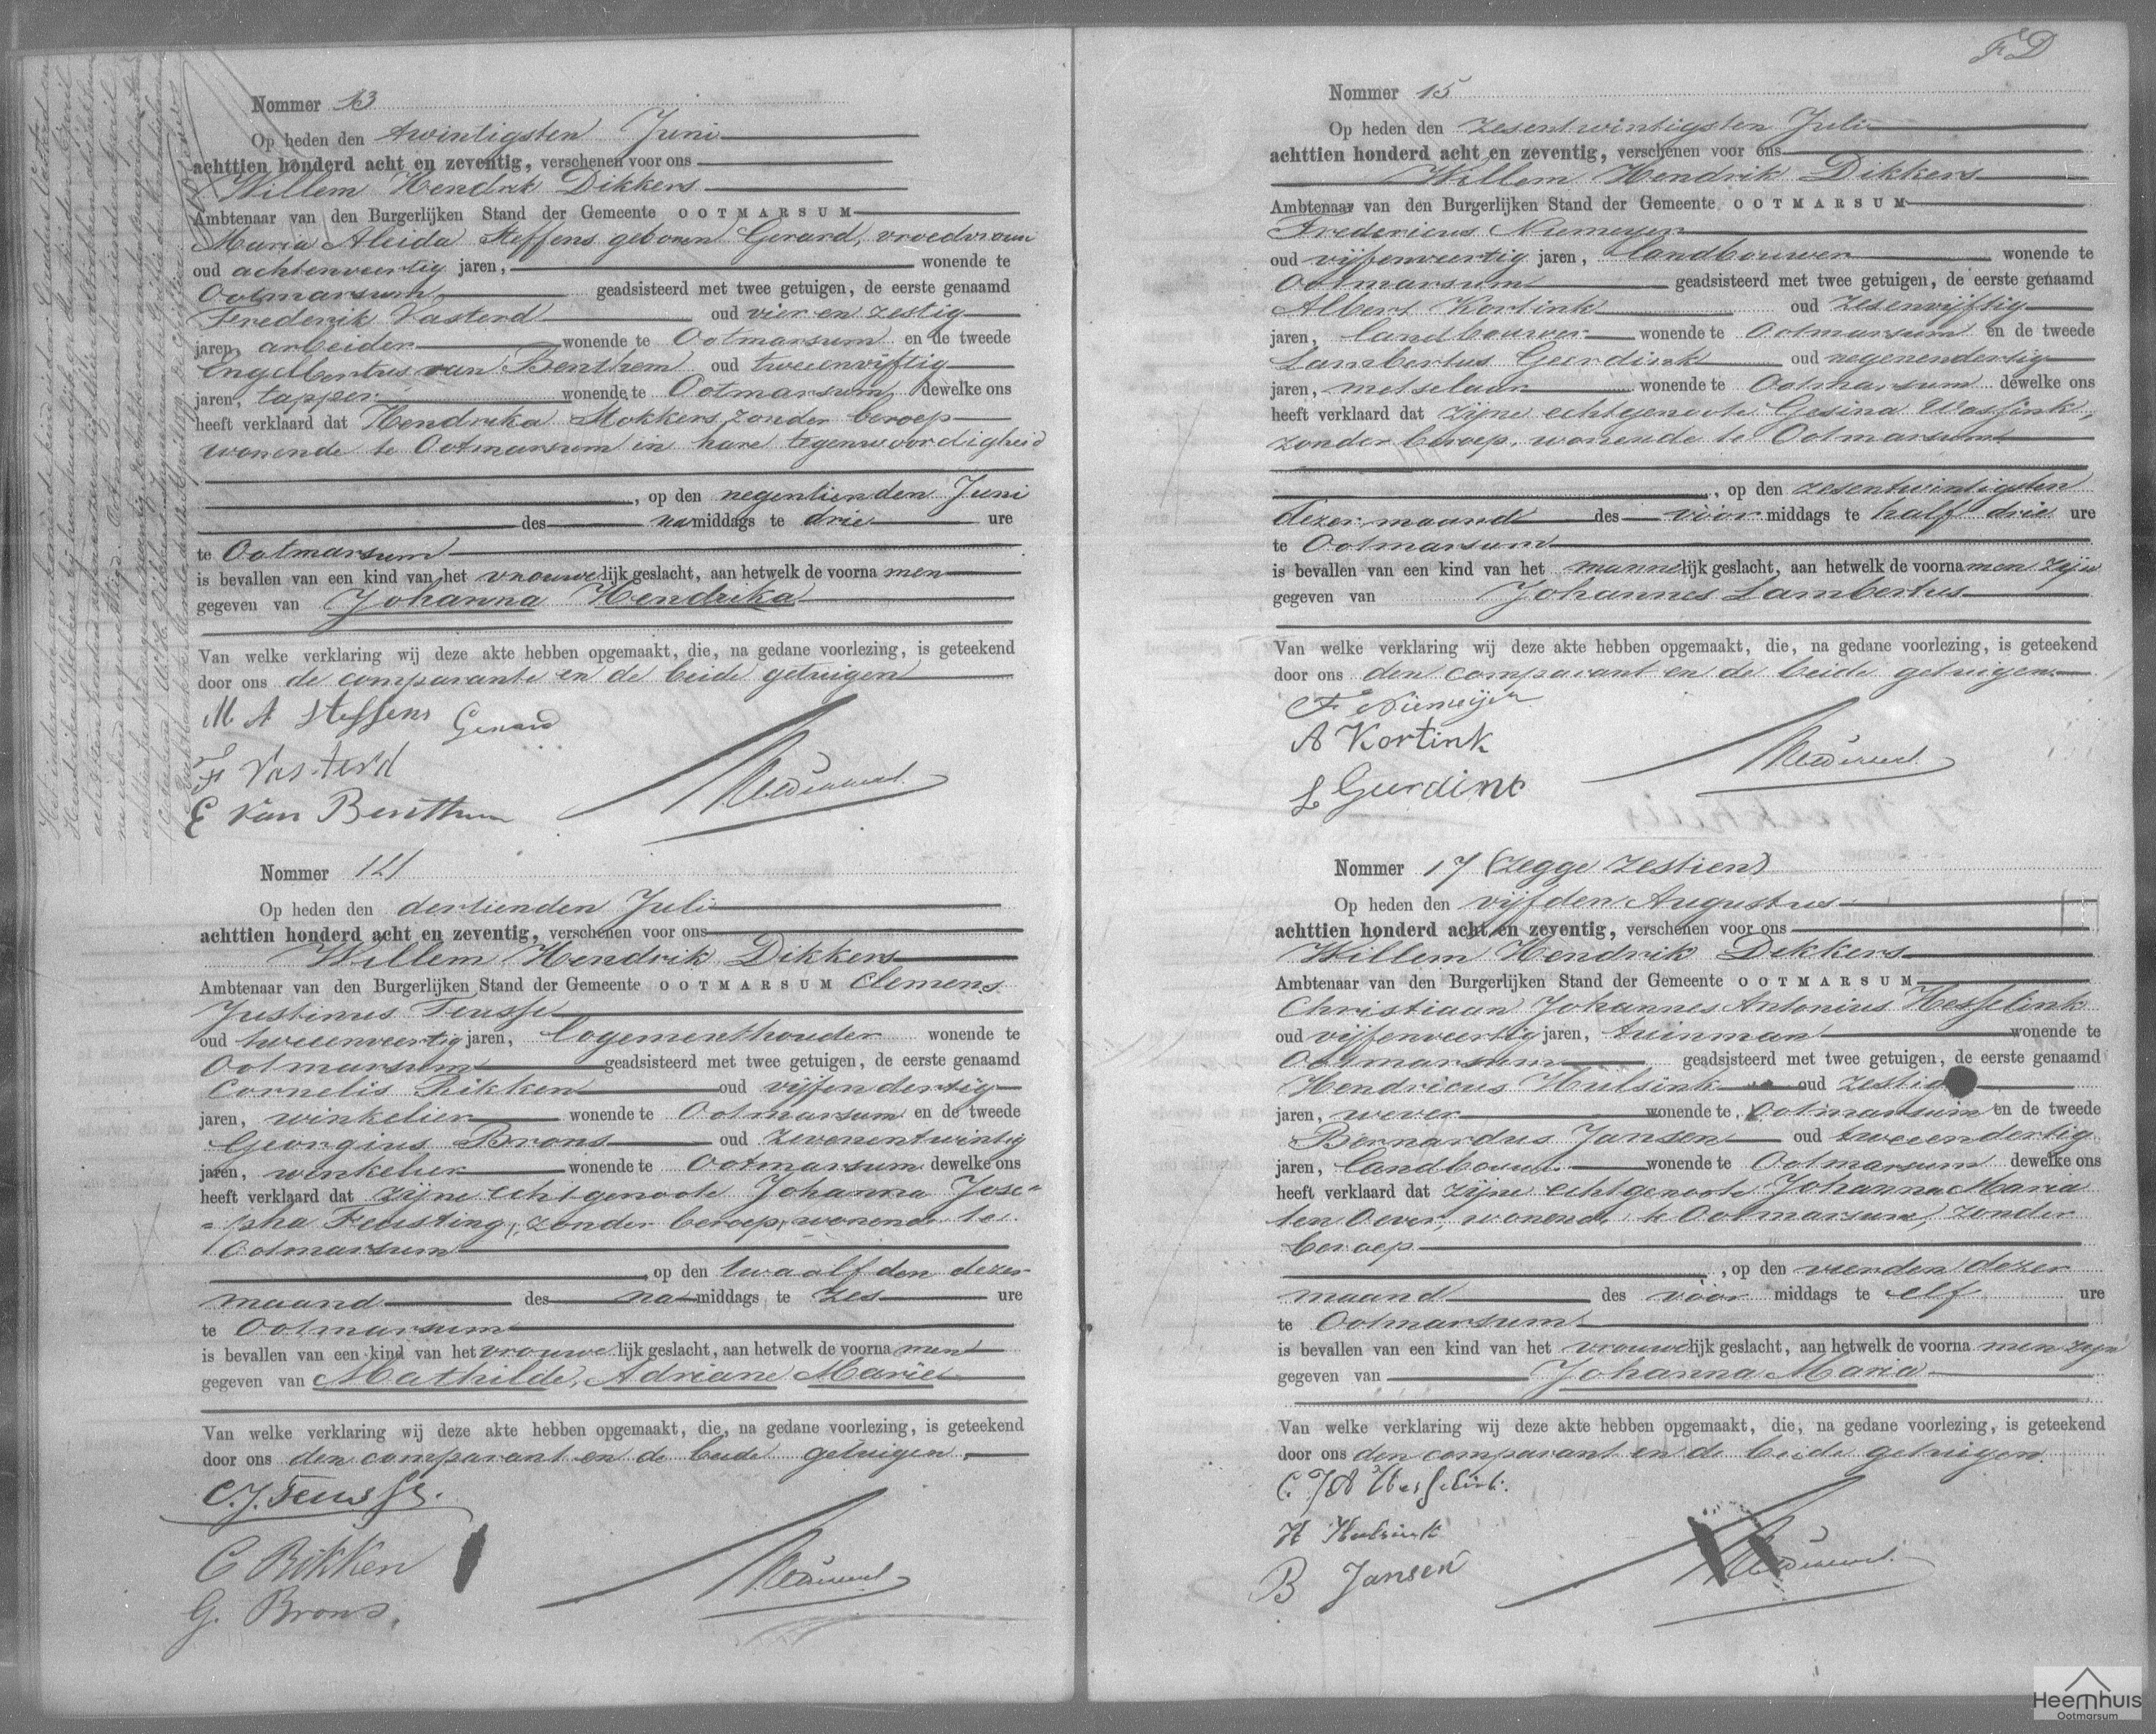 Nommer 13
Op heden den twintigsten Juni
achttien honderd acht en zeventig, verschenen voor ons
Willem Hendrik Dikkers
Ambtenaar van den Burgerlijken Stand der Gemeente OOTMARSUM
Maria Aleida Steffens geboren Gerard, vroedvrouw
oud achtenveertig jaren, wonende te
Ootmarsum geadsisteerd met twee getuigen, de eerste genaamd
Frederik Vasterd oud vier en zestig
jaren, arbeider wonende te Ootmarsum en de tweede
Engelbertus van Benthem oud tweeenvijftig
jaren, tapper wonende te Ootmarsum, dewelke ons
heeft verklaard dat Hendrika Mokkers, zonder beroep
wonende te Ootmarsum in hare tegenwoordigheid
, op den negentienden Juni
des namiddags te drie ure
te Ootmarsum
is bevallen van een kind van het vrouwelijk geslacht, aan hetwelk de voornamen
gegeven van Johanna Hendrika
Van welke verklaring wij deze akte hebben opgemaakt, die, na gedane voorlezing, is geteekend
door ons de comparante en de beide getuigen
M A Steffens Gerard
F Vasterd
E van Benthem
Nommer 14
Op heden den dertienden Juli
achttien honderd acht en zeventig, verschenen voor ons
Willem Hendrik Dikkers
Ambtenaar van den Burgerlijken Stand der Gemeente OOTMARSUM Clemens
Justinus Feusse
oud tweeenveertig jaren, logementhouder wonende te
Ootmarsum geadsisteerd met twee getuigen, de eerste genaamd
Cornelis Rikken oud vijfendertig
jaren, winkelier wonende te Ootmarsum en de tweede
Georgius Brons oud zevenentwintig
jaren, winkelier wonende te Ootmarsum dewelke ons
heeft verklaard dat zijne echtgenoote Johanna Jose=
=pha Feusting, zonder beroep, wonende te
Ootmarsum
, op den twaalfden dezer
maand des na middags te zes ure
te Ootmarsum
is bevallen van een kind van het vrouwelijk geslacht, aan hetwelk de voornamen
gegeven van Mathilde, Adriane Marie
Van welke verklaring wij deze akte hebben opgemaakt, die, na gedane voorlezing, is geteekend
door ons den comparant en de beide getuigen.
C.J. Feusse.
C Rikken
G. Brons.
F D
Nommer 15
Op heden den zesentwintigsten Juli
achttien honderd acht en zeventig, verschenen voor ons
Willem Hendrik Dikkers
Ambtenaar van den Burgerlijken Stand der Gemeente OOTMARSUM
Fredericus Niemeyer
oud vijfenveertig jaren, landbouwer wonende te
Ootmarsum geadsisteerd met twee getuigen, de eerste genaamd
Albert Kortink oud zesenvijftig
jaren, landbouwer wonende te Ootmarsum en de tweede
Lambertus Geerdink oud negenendertig
jaren, metselaar wonende te Ootmarsum dewelke ons
heeft verklaard dat zijne echtgenoote Gesina Wassink,
zonder beroep, wonende te Ootmarsum
, op den zesentwintigsten
dezer maand des voor middags te half drie ure
te Ootmarsum
is bevallen van een kind van het mannelijk geslacht, aan hetwelk de voornamen zijn
gegeven van Johannes Lambertus
Van welke verklaring wij deze akte hebben opgemaakt, die, na gedane voorlezing, is geteekend
door ons den comparant en de beide getuigen.
F Niemeijer
A Kortink
L Geerdink
Nommer 17 (zegge zestien)
Op heden den vijfden Augustus
achttien honderd acht en zeventig, verschenen voor ons
Willem Hendrik Dikkers
Ambtenaar van den Burgerlijken Stand der Gemeente OOTMARSUM
Christiaan Johannes Antonius Hesselink
oud vijfenveertig jaren, tuinman wonende te
Ootmarsum geadsisteerd met twee getuigen, de eerste genaamd
Hendricus Hulsink oud zestig
jaren, wever wonende te Ootmarsum en de tweede
Bernardus Jansen oud tweeendertig
jaren, landbouwer wonende te Ootmarsum dewelke ons
heeft verklaard dat zijne echtgenoote Johanna Maria
ten Oever, wonende te Ootmarsum, zonder
beroep
, op den vierden dezer
maand des voor middags te elf ure
te Ootmarsum
is bevallen van een kind van het vrouwelijk geslacht, aan hetwelk de voornamen zijn
gegeven van Johanna Maria
Van welke verklaring wij deze akte hebben opgemaakt, die, na gedane voorlezing, is geteekend
door ons den comparant en de beide getuigen.
C. J A Hesselink.
H Hulsink
B Jansen
Heemhuis
Ootmarsum